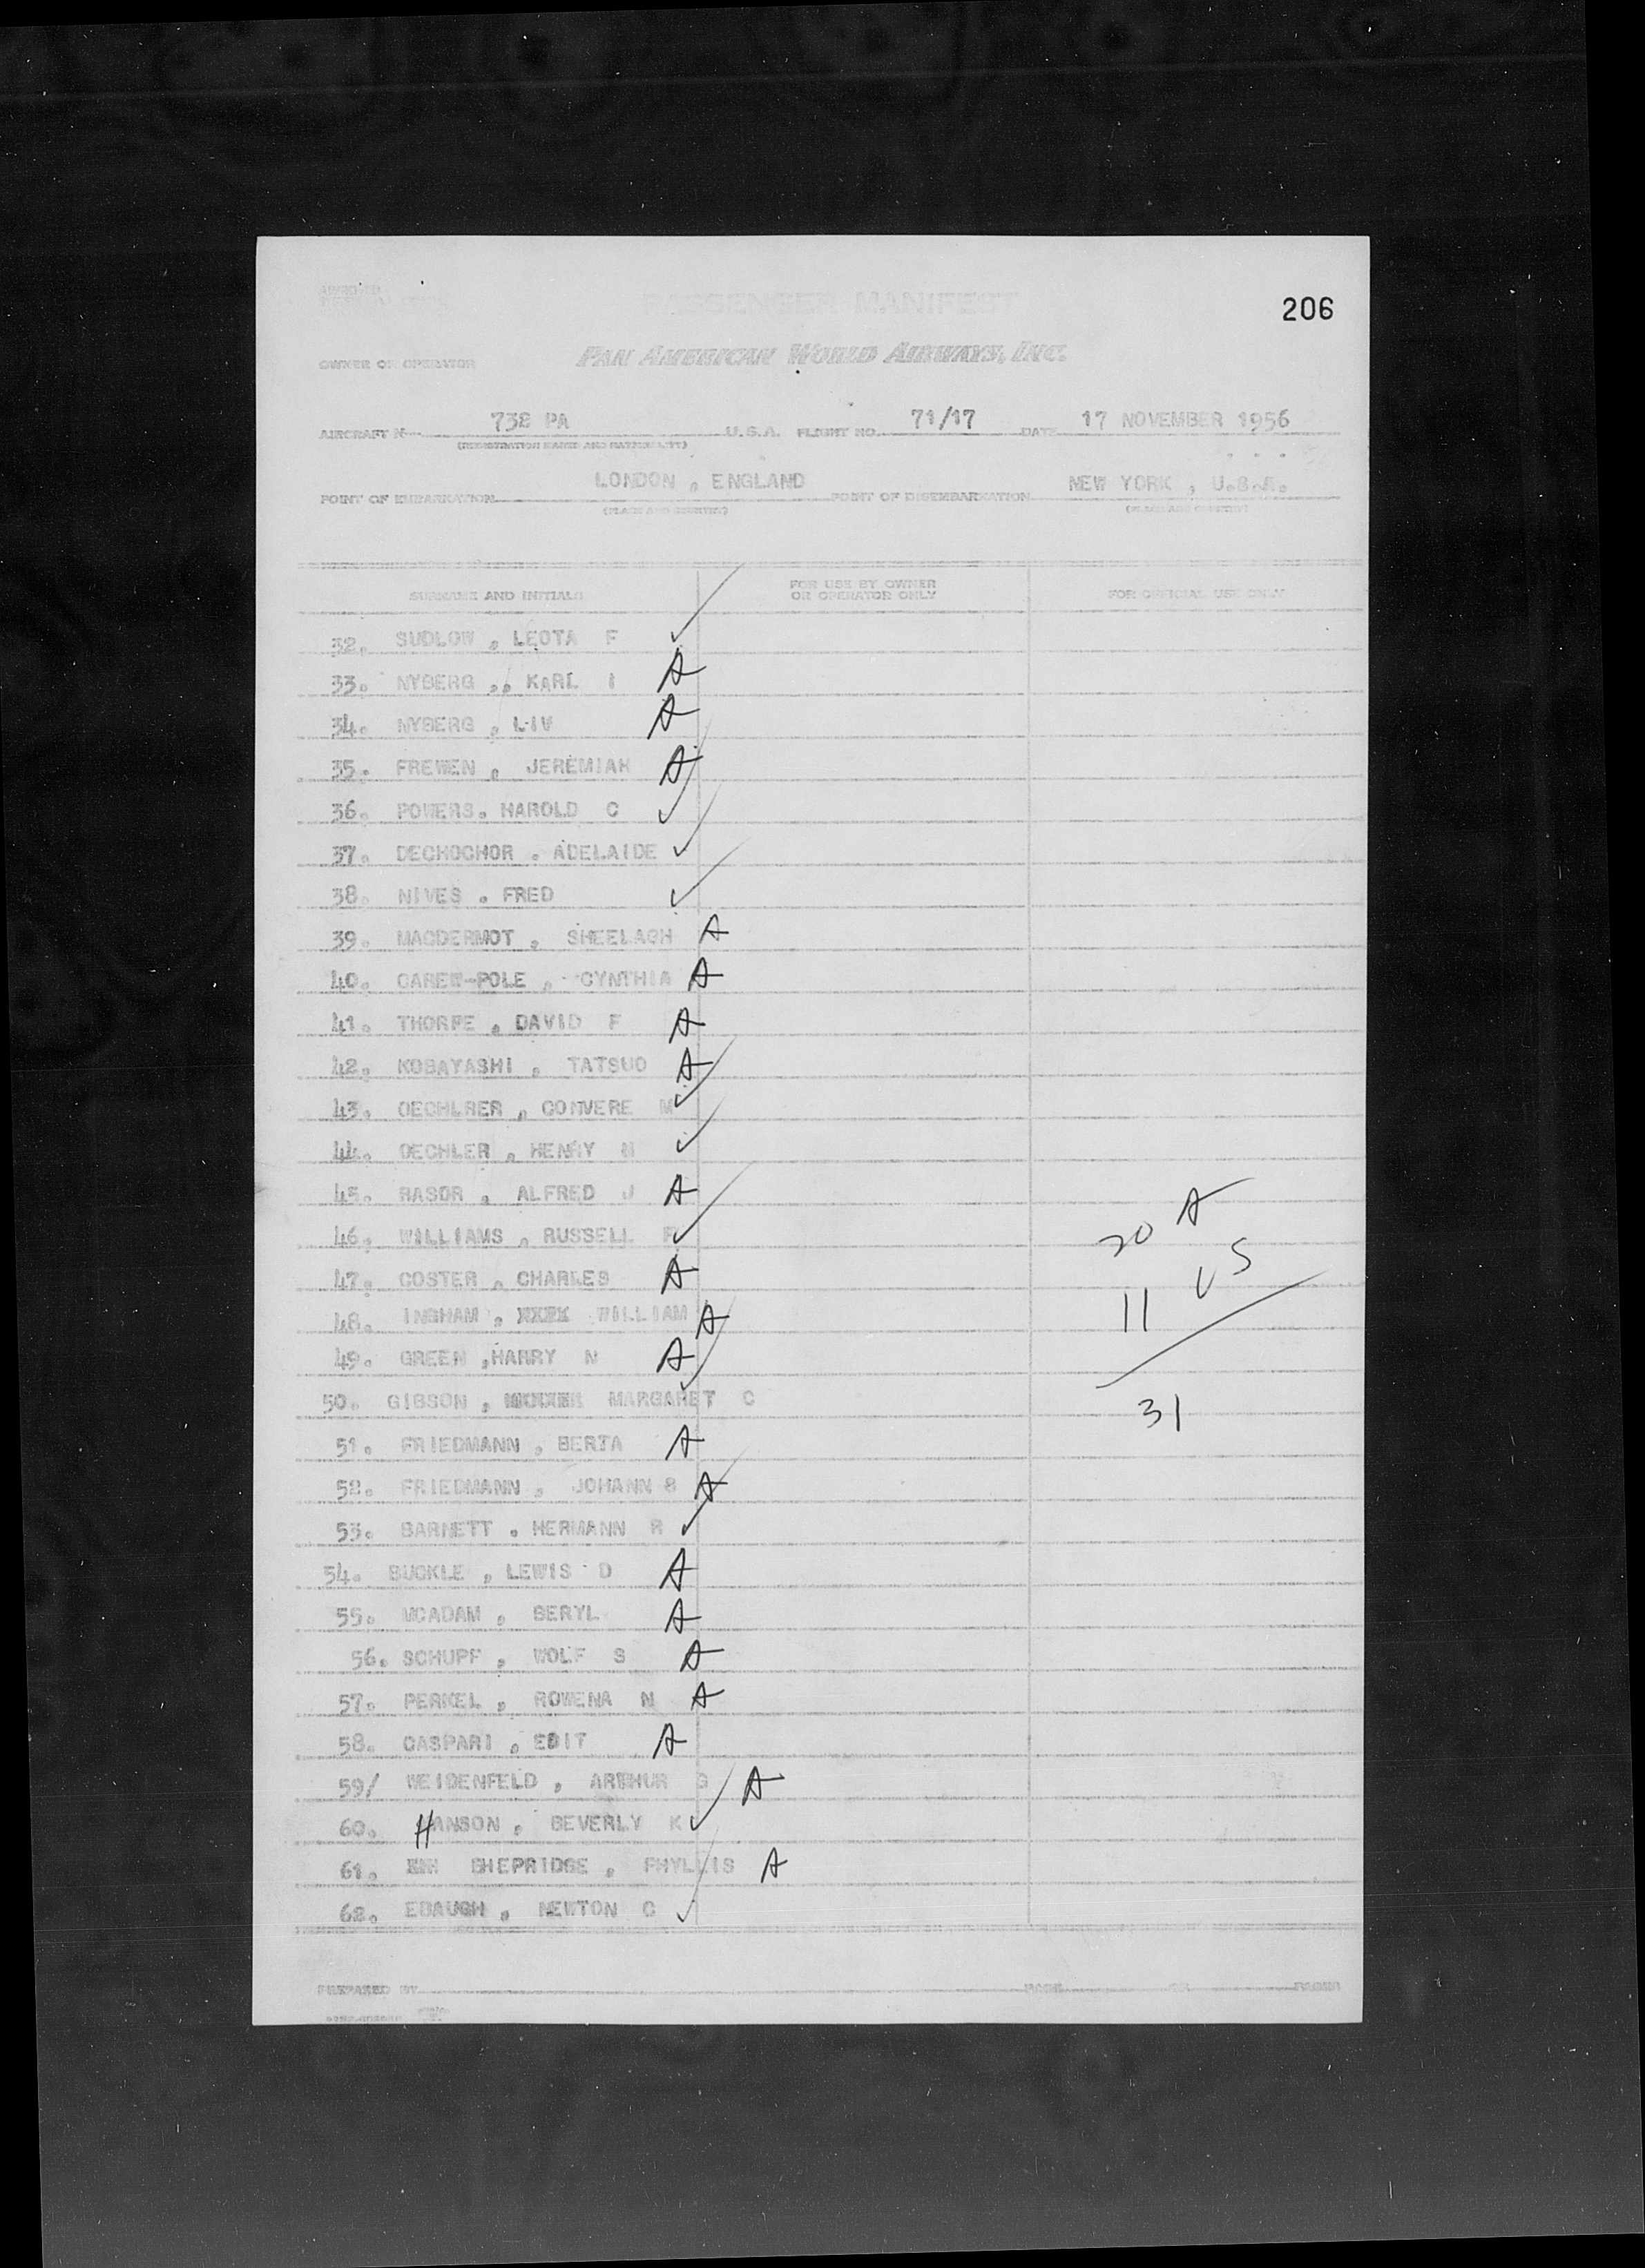 PASSENGER MANIFEST
206
OWNER OR OPERATOR PAN AMERICAN WORLD AIRWAYS, INC.
AIRCRAFT N 738 PA U.S.A. FLIGHT NO. 71/17 DATE 17 NOVEMBER 1956
(REGISTRATION MARKS AND NATIONALITY)
POINT OF EMBARKATION LONDON , ENGLAND POINT OF DISEMBARKATION NEW YORK , U.S.A.
(PLACE AND COUNTRY) (PLACE AND COUNTRY)
SURNAME AND INITIALS FOR USE BY OWNER OR OPERATOR ONLY FOR OFFICIAL USE ONLY
32. SUDLOW , LEOTA F ✓
33. NYBERG ,, KARL I A
34. NYBERG , LIV A
35. FREWEN , JEREMIAH A
36. POWERS. HAROLD C ✓
37. DECHOCHOR . ADELAIDE ✓
38. NIVES . FRED ✓
39. MACDERMOT , SHEELAGH A
40. CAREW-POLE , CYNTHIA A
41. THORPE , DAVID F A
42. KOBAYASHI , TATSUO A
43. OECHLRER , CONVERE M ✓
44. OECHLER , HENRY ✓
45. RASOR , ALFRED J A
46. WILLIAMS , RUSSELL ✓
47. COSTER , CHARLES A
48. INGHAM , WILLIAM A
49. GREEN ,HARRY N A
50. GIBSON , MARGARET C ✓
51. FRIEDMANN , BERTA A
52. FRIEDMANN , JOHANN S A
53. BARNETT . HERMANN R ✓
54. BUCKLE , LEWIS D A
55. MCADAM , BERYL A
56. SCHUPF , WOLF S A
57. PERKEL , ROWENA N A
58. GASPARI , EDIT A
59/ WEIDENFELD , ARTHUR G A
60. HANSON , BEVERLY K ✓
61. SHEPRIDGE , PHYLLIS A
62. EBAUGH , NEWTON C ✓
20 A
11 US
31
PREPARED BY PAGE OF PAGES